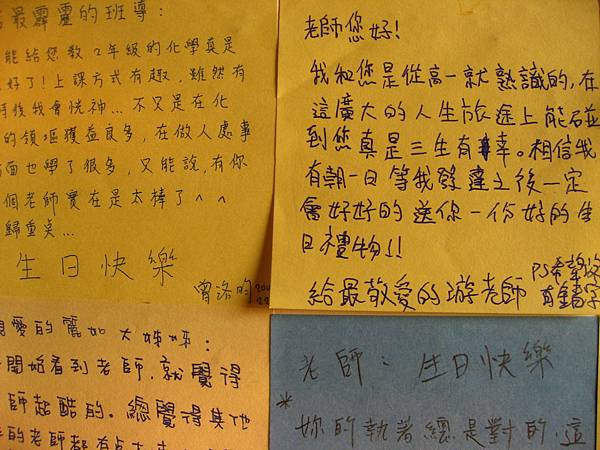 最霹靂的班導：
能給您教2年級的化學真是
好了！上課方式有趣，雖然有
時後我會恍神...不只是在化
的領域獲益良多，在做人處事
方面也學了很多，又能說，有你
個老師實在是太棒了^^
歸重矣...
生日快樂
老師您好！
我和您是從高一就熟識的，在
這廣大的人生旅途上能碰
到您真是三生有幸。相信我
有朝一日等我發達之後一定
會好好的送你一份好的生
日禮物!!
給最敬愛的游老師
P.S希望
愛的麗如大姊姊：
開始看到老師，就覺得
師超酷的。總覺得其他
的老師都有點
老師：生日快樂
*
妳的執著總是對的，這